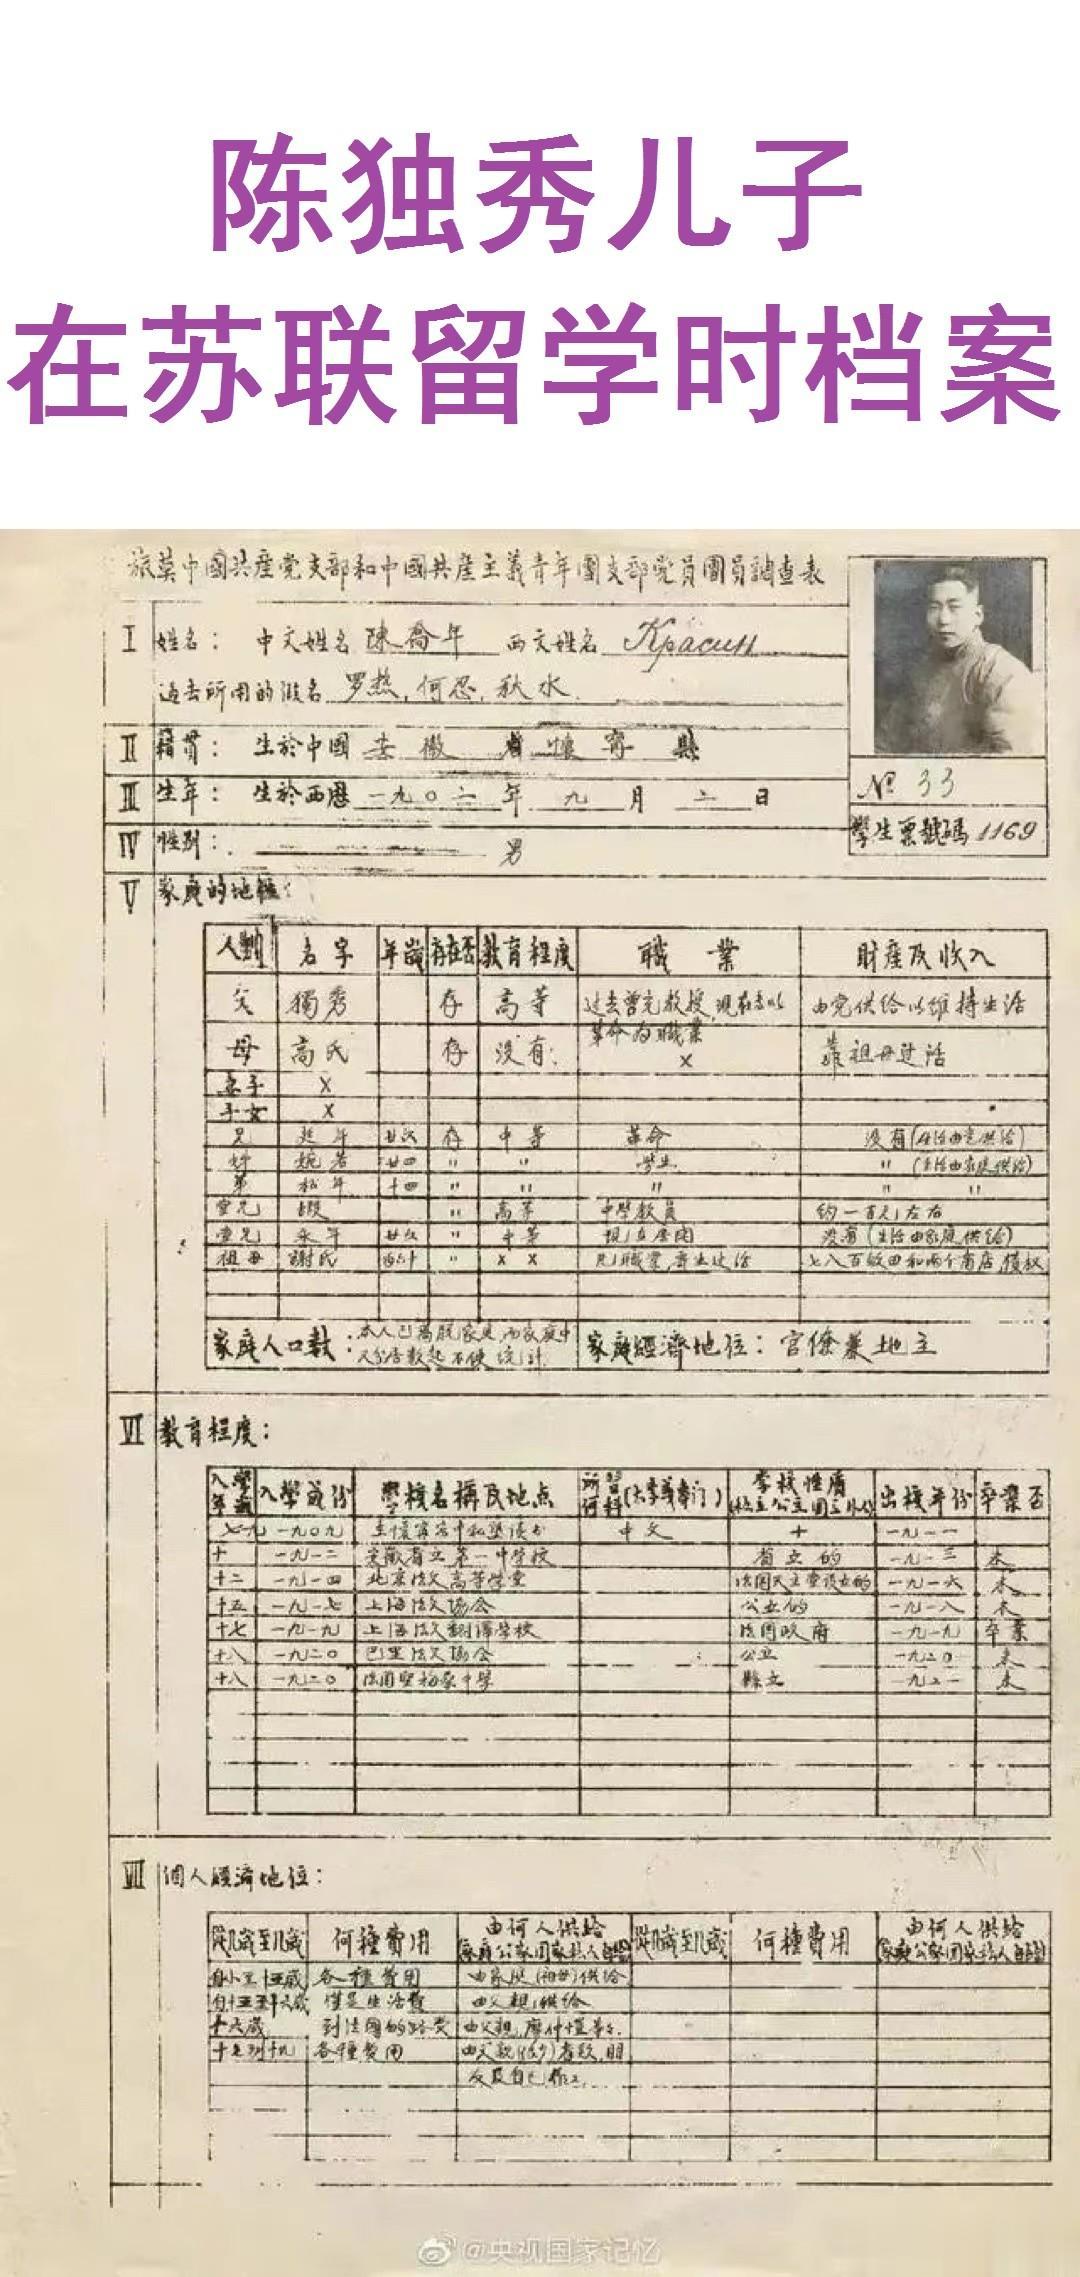 陈独秀儿子
在苏联留学时档案
旅莫中國共產党支部和中國共產主義青年團支部党員團員調查表
I 姓名： 中文姓名 陳喬年 西文姓名 Красин
过去所用的假名 罗热，何忍，秋水
II 籍贯： 生於中國 安徽 省 懷寧 縣
№ 33
III 生年： 生於西曆 一九〇二 年 九 月 二 日
學生票號碼 1169
IV 性别： 男
V 家庭的地位：
人劃 名字 年歲 存在否 教育程度 職業 財産及收入
父 獨秀 存 高等 过去曾充教授，現在专以革命为職業 由党供给以维持生活
母 高氏 存 没有 × 靠祖母过活
妻子 ×
子女 ×
兄 延年 廿六 存 中等 革命 没有(生活由党供给)
廿四 〃 〃 学生 〃 (生活由家庭供给)
弟 松年 十四 〃 〃 〃 〃 〃
堂兄 〃 高等 中學教員 约一百元左右
堂兄 永年 〃 中等 現在居闲 没有(生活由家庭供给)
祖母 謝氏 〃 × × 七八百畝田和两个商店
家庭人口数： 本人已离脱家庭，而家庭中又分居散起不便统计
家庭經濟地位：官僚兼地主
VI 教育程度：
入學年歲 入學歲份 學校名稱及地点 所習何科(大學或專门) 学校性质 出校年份 卒業否
七九 一九〇九 在懷寧家中私塾读书 中文 十 一九一一
十 一九一二 安徽省立第一中学校 省立的 一九一三 未
十二 一九一四 北京法文高等学堂 法国天主堂设立的 一九一六 未
十五 一九一七 上海法文協会 公立的 一九一八 未
十七 一九一九 上海法文翻譯学校 法国政府 一九一九 卒業
十八 一九二〇 巴里法文協会 公立 一九二〇 未
十八 一九二〇 中学 縣立 一九二一 未
VII 個人經濟地位：
從几歲至几歲 何種費用 由何人供给 從几歲至几歲 何種費用 由何人供给
自小至十五歲 各種費用 由家庭(祖母)供给
自十五至十六歲 僅是生活費 由父親供给
十六歲 到法國的路费 由父親
十七到十九 各種費用 由父親(很少)
@央视国家记忆